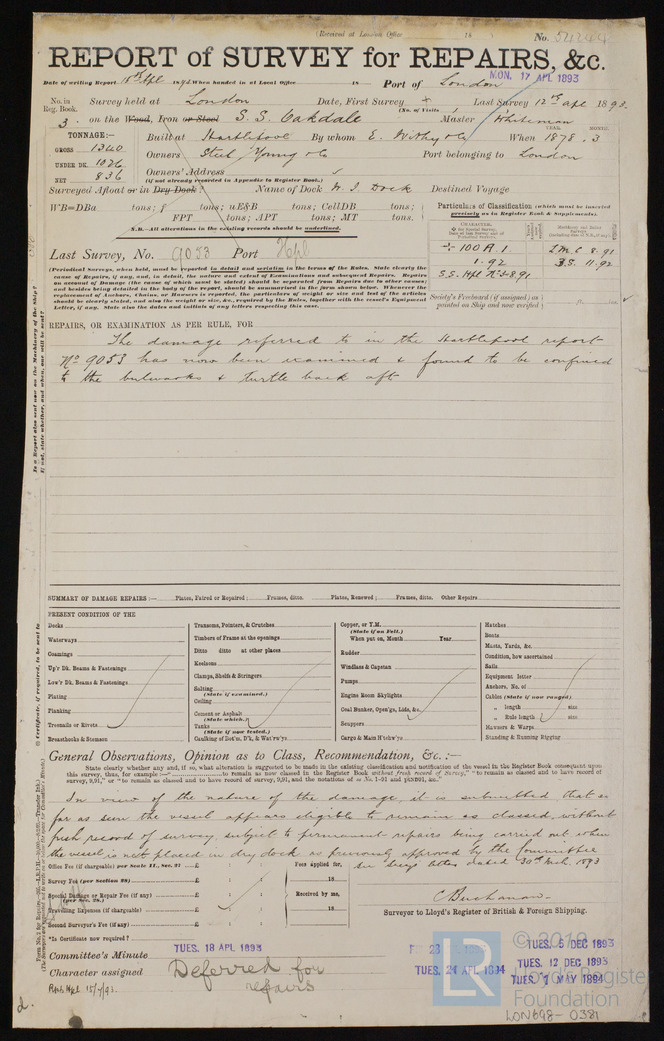 (Received at London Office 18 )
No. 54244
REPORT of SURVEY for REPAIRS, &c.
Date of writing Report 15th Apl 1893 When handed in at Local Office 18 Port of London
MON. 17 APL 1893
No. in Reg. Book. Survey held at London Date, First Survey Last Survey 12th apl 1893
(No. of Visits )
3. on the Wood, Iron or Steel S.S. Oakdale Master Whiteman
TONNAGE:—
GROSS 1340
UNDER DK. 1026
NET 836
Built at Hartlepool By whom E. Withy & Co When 1878.3
YEAR. MONTH.
Owners Steel Young & Co Port belonging to London
Owners' Address
(if not already recorded in Appendix to Register Book.)
Surveyed Afloat or in Dry Dock? Name of Dock W. I. Dock Destined Voyage
WB=DBa tons; f tons; uE&B tons; CellDB tons;
FPT tons; APT tons; MT tons.
N.B.—All alterations in the existing records should be underlined.
Particulars of Classification (which must be inserted precisely as in Register Book & Supplements).
Last Survey, No. 9053 Port Hpl
100 A.1. LMC 8.91
1.92 BS. 11.92
S.S. Hpl
(Periodical Surveys, when held, must be reported in detail and seriatim in the terms of the Rules. State clearly the cause of Repairs, if any, and, in detail, the nature and extent of Examinations and subsequent Repairs. Repairs on account of Damage (the cause of which must be stated) should be separated from Repairs due to other causes; and besides being detailed in the body of the report, should be summarised in the form shown below. Whenever the replacement of Anchors, Chains, or Hawsers is reported, the particulars of weight or size and test of the articles should be clearly stated, and also the weight or size, &c., required by the Rules, together with the vessel's Equipment Letter, if any. State also the dates and initials of any letters respecting this case.
Society's Freeboard (if assigned) as painted on Ship and now verified
REPAIRS, OR EXAMINATION AS PER RULE, FOR
The damage referred to in the Hartlepool report
No 9053 has now been examined & found to be confined
to the bulwarks & turtle back aft
SUMMARY OF DAMAGE REPAIRS:— Plates, Faired or Repaired; Frames, ditto. Plates, Renewed; Frames, ditto. Other Repairs
PRESENT CONDITION OF THE
Decks
Waterways
Coamings
Up'r Dk. Beams & Fastenings
Low'r Dk. Beams & Fastenings
Plating
Planking
Treenails or Rivets
Breasthooks & Stemson
Transoms, Pointers, & Crutches
Timbers of Frame at the openings
Ditto ditto at other places
Keelsons
Clamps, Shelfs & Stringers
Salting
(State if examined.)
Ceiling
Cement or Asphalt
(State which.)
Tanks
(State if now tested.)
Caulking of Bot'm, D'k, & Wat'rw'ys
Copper, or Y.M.
(State if on Felt.)
When put on, Month Year
Rudder
Windlass & Capstan
Pumps
Engine Room Skylights
Coal Bunker, Open'gs, Lids, &c.
Scuppers
Cargo & Main H'tchw'ys
Hatches
Boats
Masts, Yards, &c.
Condition, how ascertained
Sails
Equipment letter
Anchors, No. of
Cables (State if now ranged)
" length size
" Rule length size
Hawsers & Warps
Standing & Running Rigging
General Observations, Opinion as to Class, Recommendation, &c.:—
State clearly whether any, and if so, what alteration is suggested to be made in the existing classification and notification of the vessel in the Register Book consequent upon
this survey, thus, for example:—" to remain as now classed in the Register Book without fresh record of Survey," "to remain as classed and to have record of
survey, 9,91," or "to remain as classed and to have record of survey, 9,91, and the notations of ss No. 1-91 and ptND91, &c."
In view of the nature of the damage, it is submitted that so
far as seen the vessel appears eligible to remain as classed, without
fresh record of survey, subject to permanent repairs being carried out when
the vessel is next placed in dry dock as previously approved by the Committee
see Secys letter dated 30th Mch 1893
Office Fee (if chargeable) per Scale 11., sec. 27 £
Survey Fee (per Section 28) £
Special Damage or Repair Fee (if any) £
(per Sec. 28.)
Travelling Expenses (if chargeable) £
Second Surveyor's Fee (if any) £
Fees Applied for,
18
Received by me,
18
C Buchanan
Surveyor to Lloyd's Register of British & Foreign Shipping.
*Is Certificate now required?
Committee's Minute TUES. 18 APL 1893
TUES. 5 DEC 1893
TUES. 24 APL 1894
TUES. 12 DEC 1893
TUES. 1 MAY 1894
Character assigned Deferred for
repairs
© 2019
LR
Lloyd's Register
Foundation
LON698-0381